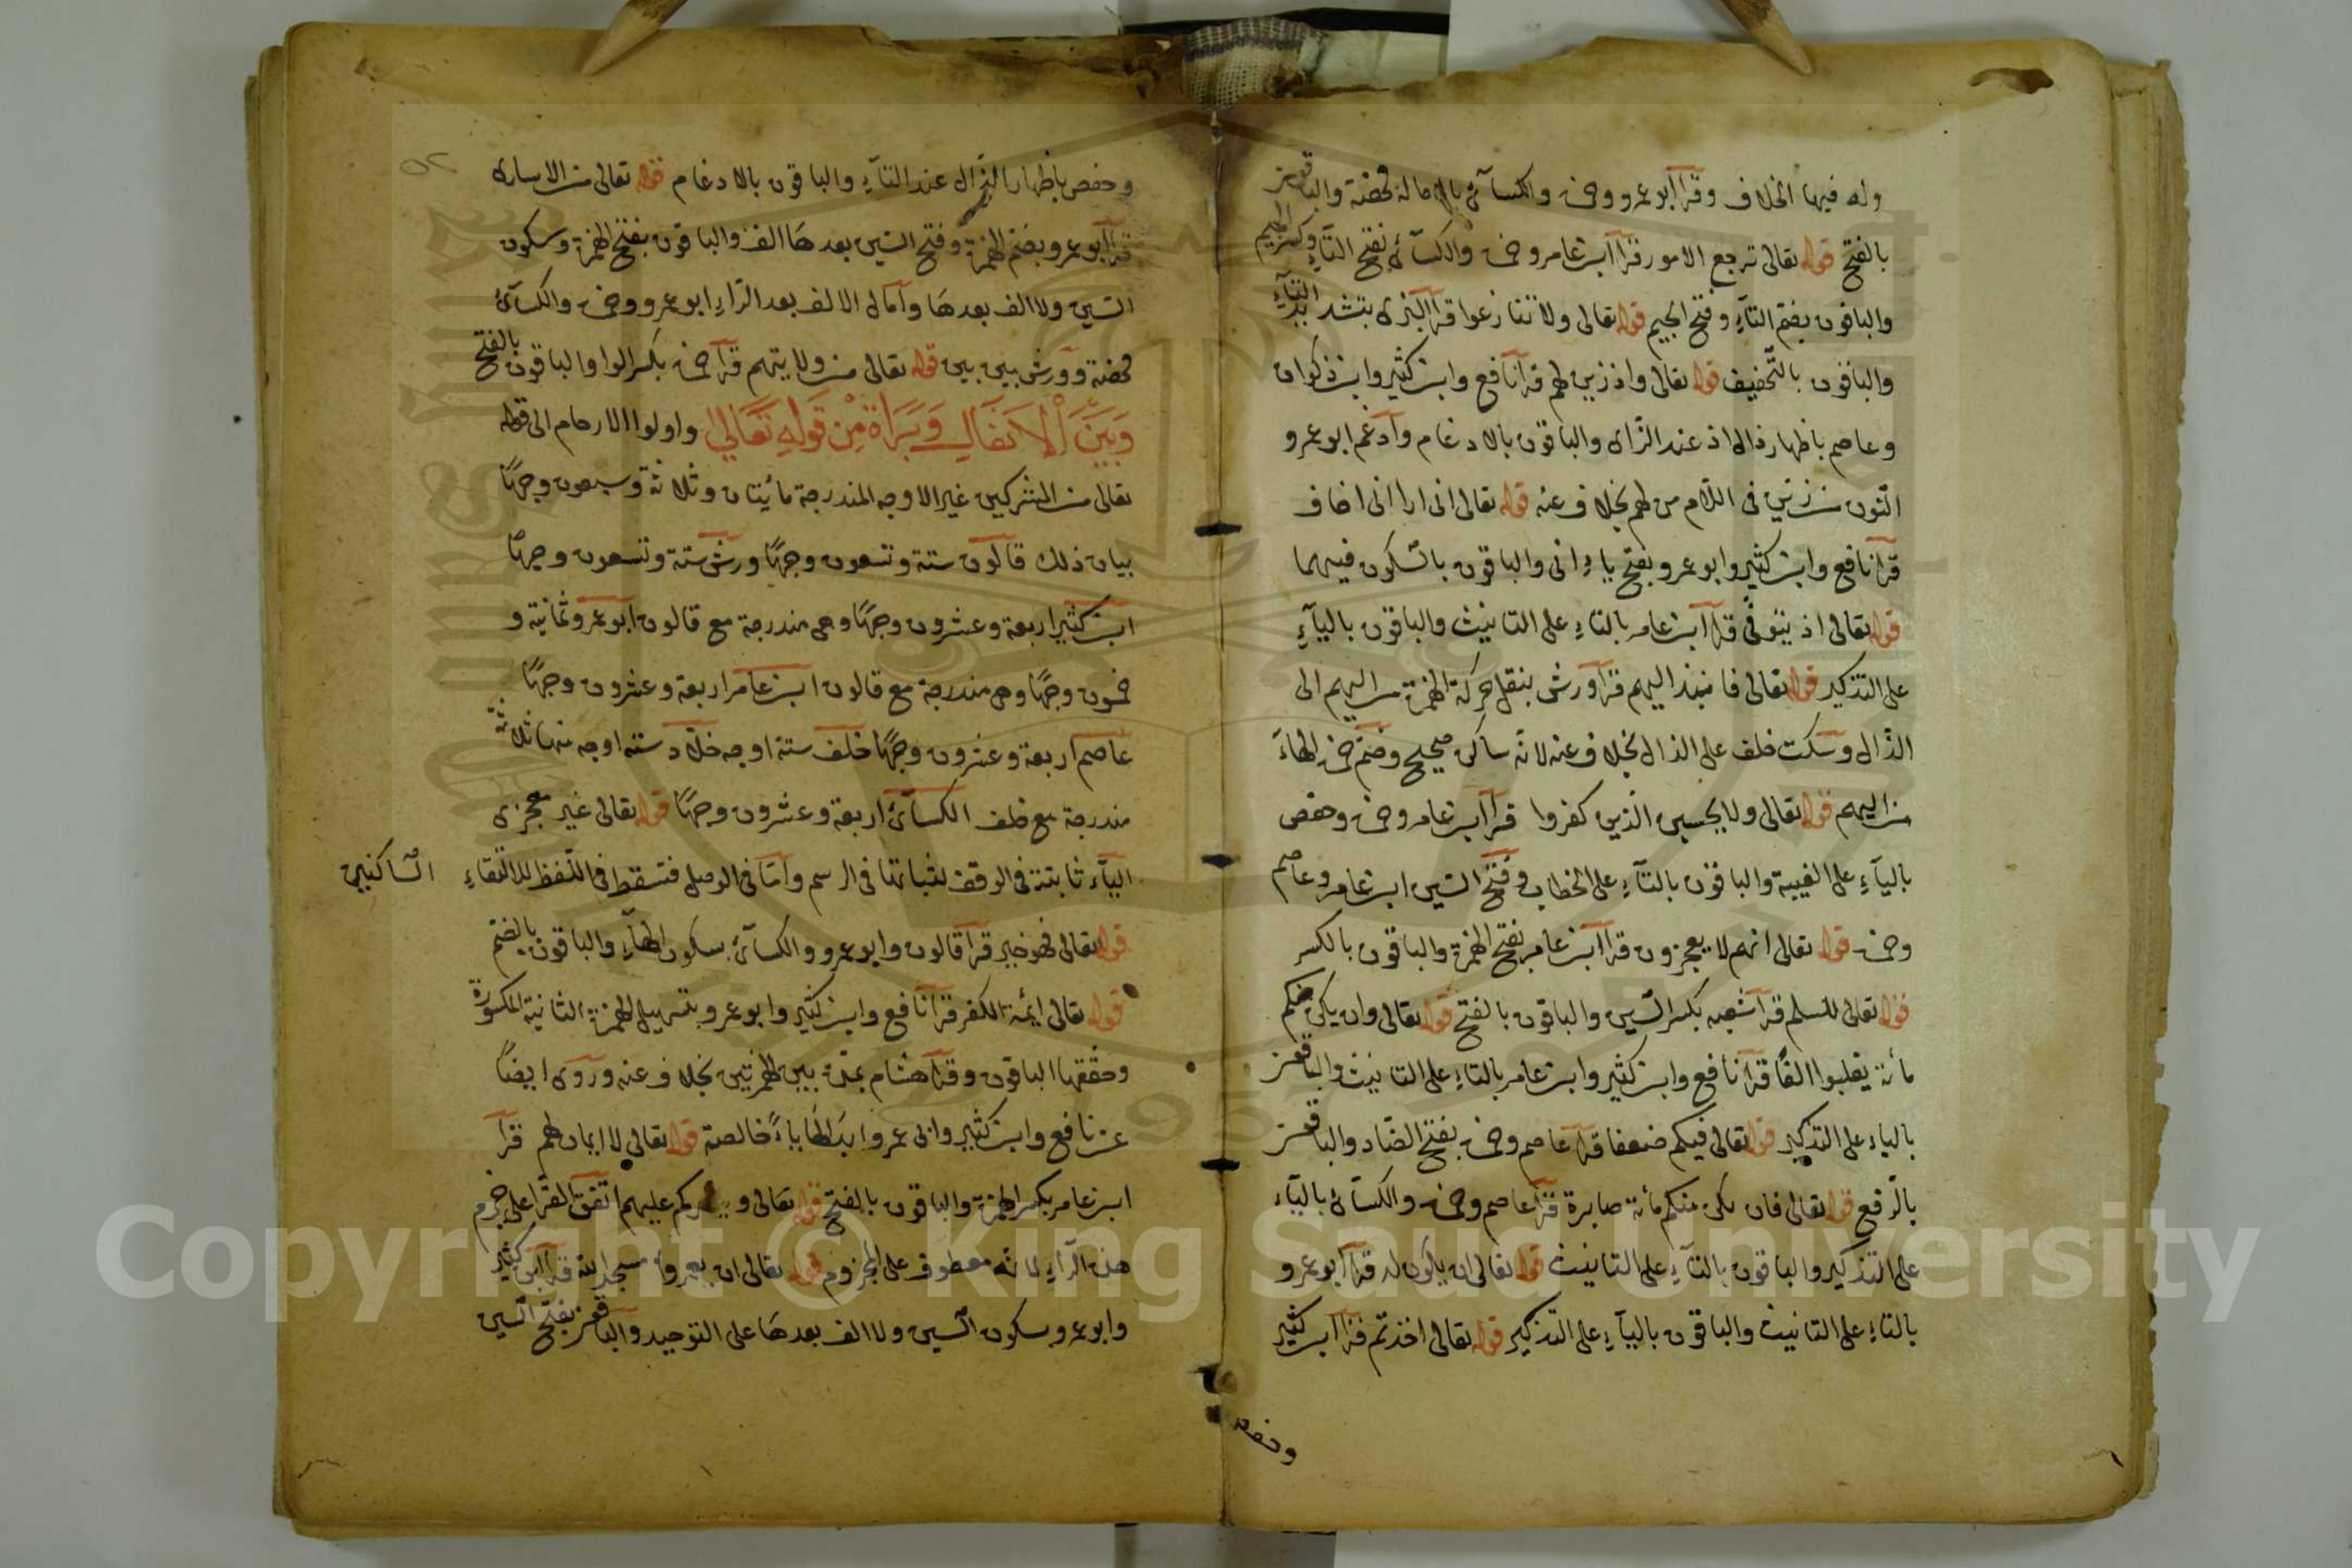 وله فيها الخلاف وقرا ابو عمرو وحمزة والكسائى بالامالة محضة والباقون
بالفتح قوله تعالى ترجع الامور قرا ابن عامر وحمزة والكسائى بفتح التاء وكسر الجيم
والباقون بضم التاء وفتح الجيم قوله تعالى ولا تنازعوا قرا البزى بتشديد التاء
والباقون بالتخفيف قوله تعالى واذ زين لهم قرا نافع وابن كثير وابن ذكوان
وعاصم باظهار ذال اذ عند الزاى والباقون بالادغام وادغم ابو عمرو
النون من زين فى اللام من لهم بخلاف عنه قوله تعالى انى ارا انى اخاف
قرا نافع وابن كثير وابو عمرو بفتح ياء انى والباقون بالسكون فيهما
قوله تعالى اذ يتوفى قرا ابن عامر بالتاء على التانيث والباقون بالياء
على التذكير قوله تعالى فانبذ اليهم قرا ورش بنقل حركة الهمزة من اليهم الى
الذال وسكت خلف على الذال بخلاف عنه لانه ساكن صحيح وضم حمزة الهاء
من اليهم قوله تعالى ولا يحسبن الذين كفروا قرا ابن عامر وحمزة وحفص
بالياء على الغيبة والباقون بالتاء على الخطاب وفتح السين ابن عامر وعاصم
وحمزة قوله تعالى انهم لا يعجزون قرا ابن عامر بفتح الهمزة والباقون بالكسر
قوله تعالى للسلم قرا شعبه بكسر السين والباقون بالفتح قوله تعالى وان يكن منكم
مائة يغلبوا الفا قرا نافع وابن كثير وابن عامر بالتاء على التانيث والباقون
بالياء على التذكير قوله تعالى فيكم ضعفا قرا عاصم وحمزة بفتح الضاد والباقون
بالرفع قوله تعالى فان يكن منكم مائة صابرة قرا عاصم وحمزة والكسائ بالياء
على التذكير والباقون بالتاء على التانيث قوله تعالى ان يكون له قرا ابو عمرو
بالتاء على التانيث والباقون بالياء على التذكير قوله تعالى اخذتم قرا ابن كثير
وحفص
وحفص باظهار الذال عند التاء والباقون بالادغام قوله تعالى من الاسارى
قرا ابو عمرو بضم الهمزة وفتح السين بعدها الف والباقون بفتح الهمزة وسكون
السين ولا الف بعدها وامال الالف بعد الراء ابو عمرو وحمزة والكسائ
محضة وورش بين بين قوله تعالى من ولايتهم قرا حمزة بكسر الواو والباقون بالفتح
وَبَيْنَ الْاَنفَالِ وَبَرَاة مِنْ قَوْلِهِ تَعَالى واولوا الارحام الى قوله
تعالى من المشركين غير الاوجه المندرجة مائيتان وثلاثة وسبعون وجها
بيان ذلك قالون ستة وتسعون وجها ورش ستة وتسعون وجها
ابن كثير اربعة وعشرون وجها وهى مندرجة مع قالون ابو عمرو ثمانية و
خمسون وجها وهى مندرجة مع قالون ابن عامر اربعة وعشرون وجها
عاصم اربعة وعشرون وجها خلف ستة اوجه خلاد ستة اوجه منها ثلاثة
مندرجة مع خلف الكسائ اربعة وعشرون وجها قوله تعالى غير معجزى
الياء ثابتة فى الوقف لثباتها فى الرسم واما فى الوصل فتسقط فى اللفظ لالتقاء الساكنين
قوله تعالى فهو خير قرا قالون وابو عمرو والكسائ بسكون الهاء والباقون بالضم
قوله تعالى ائمة الكفر قرا نافع وابن كثير وابو عمرو بتسهيل الهمزة الثانية المكسورة
وحققها الباقون وقرا هشام بمدة بين الهمزتين بخلاف عنه وروى ايضا
عن نافع وابن كثير وابى عمرو ابدالها ياء خالصة قوله تعالى لا ايمان لهم قرا
ابن عامر بكسر الهمزة والباقون بالفتح قوله تعالى وينصركم عليهم اتفق القرا على جزم
هذه الراء لانه معطوف على المجزوم قوله تعالى ان يعمروا مسجد الله قرا ابن كثير
وابو عمرو بسكون السين ولا الف بعدها على التوحيد والباقون بفتح السين
Copyright © King Saud University